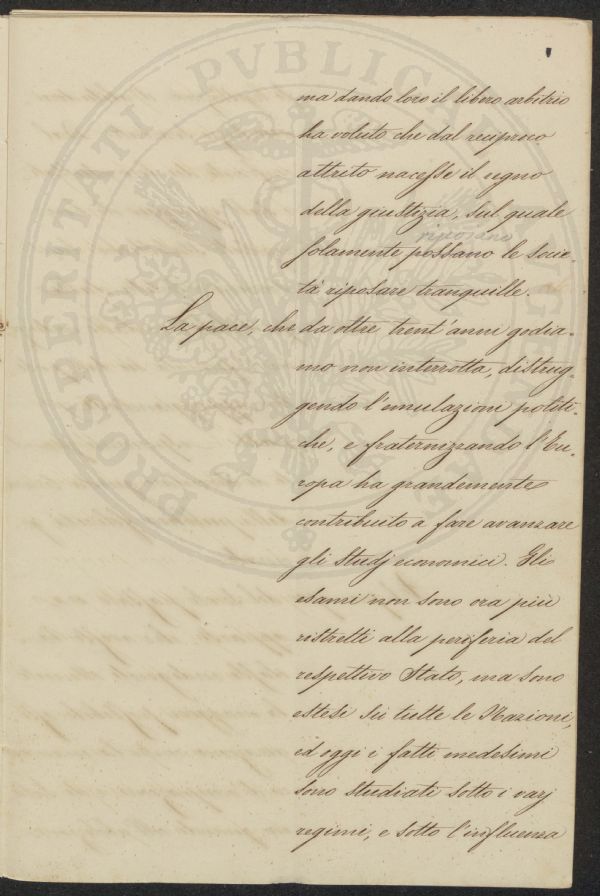 ma dando loro il libero arbitrio
ha voluto che dal reciproco
attrito nacesse il regno
della giustizia, sul quale
riposano
solamente possano le socie-
tà riposare tranquille.
La pace, che da oltre trent'anni godia-
mo non interrotta, distrug-
gendo l'emulazioni politi-
che, e fraternizzando l'Eu-
ropa ha grandemente
contribuito a fare avanzare
gli Studj economici. Gli
esami non sono ora più
ristretti alla periferia del
respettivo Stato, ma sono
estesi su tutte le Nazioni,
ed oggi i fatti medesimi
sono studiati sotto i varj
regimi, e sotto l'influenza
PROSPERITATI PVBLICAE